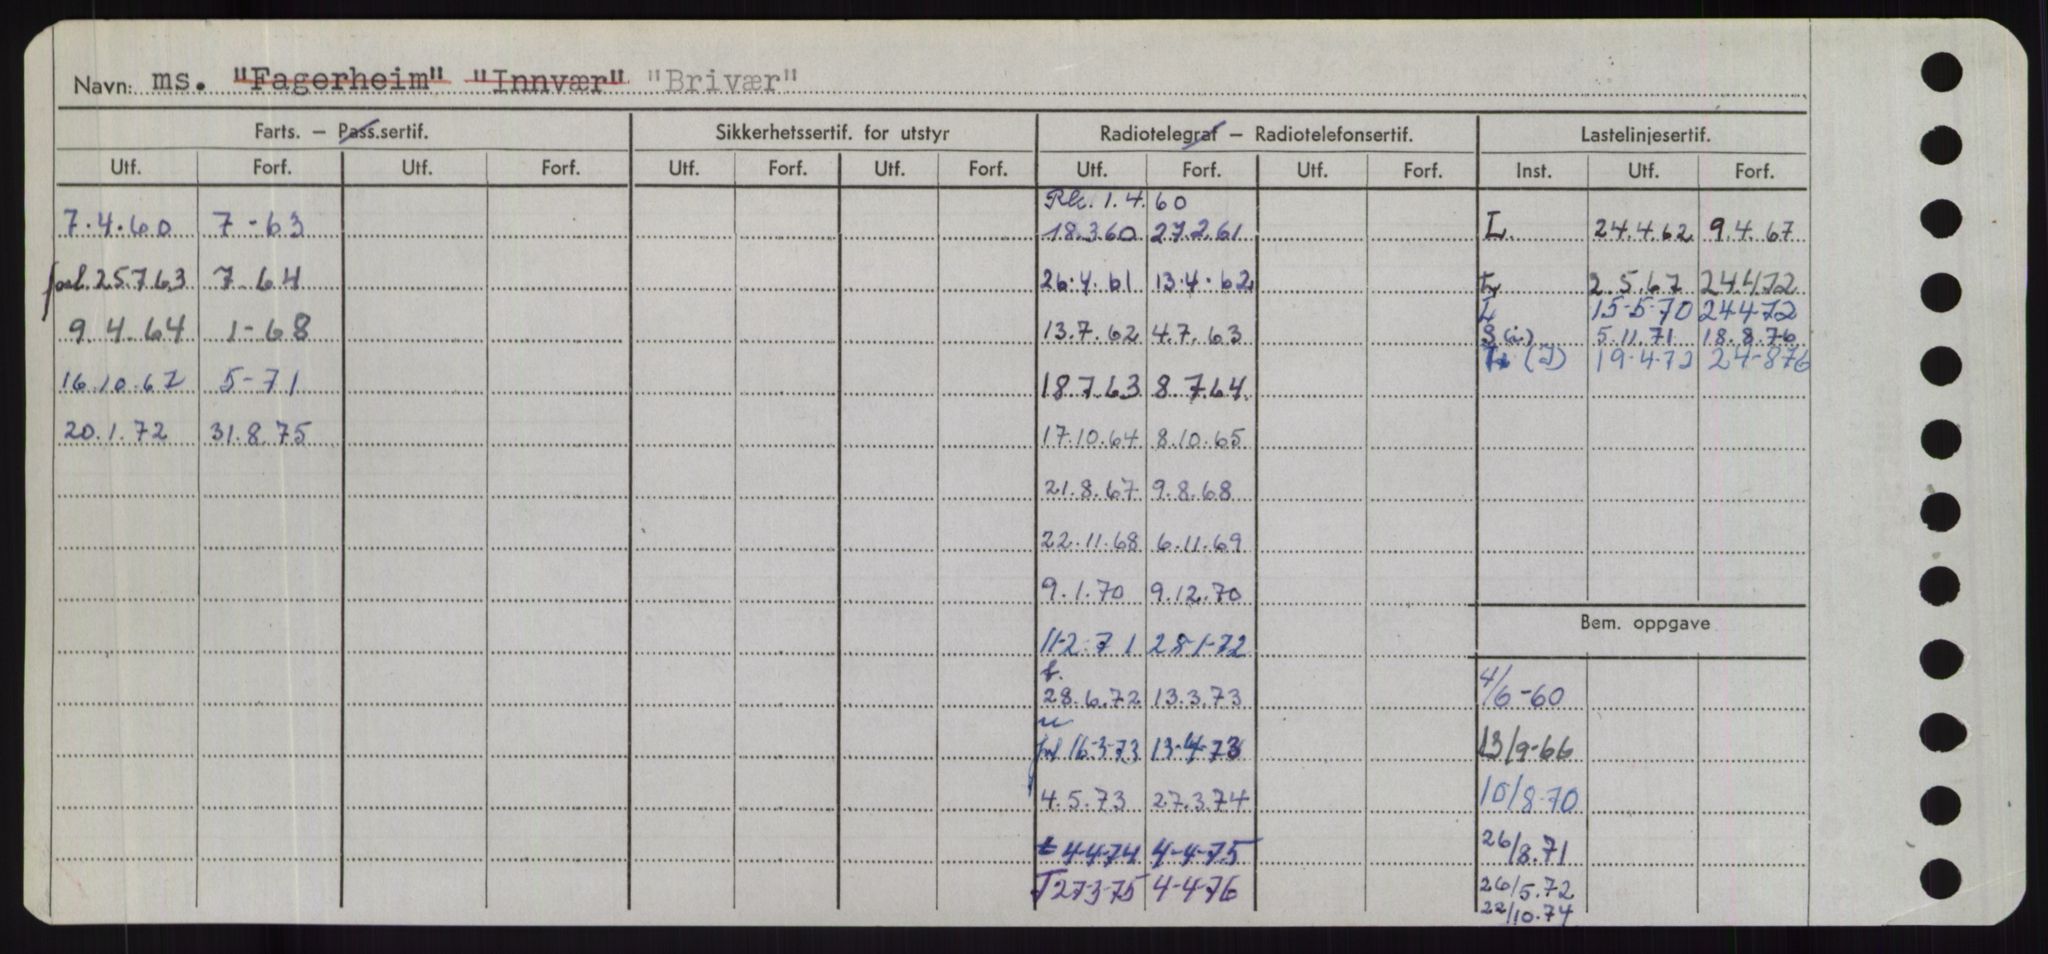 Navn: ms. "Fagerheim" "Innvær" "Brivær"
Farts. – Pass.sertif. Sikkerhetssertif. for utstyr Radiotelegraf – Radiotelefonsertif. Lastelinjesertif.
Utf. Forf. Utf. Forf. Utf. Forf. Utf. Forf. Utf. Forf. Utf. Forf. Inst. Utf. Forf.
1.4.60
7.4.60 7-63 18.3.60 27.2.61 L. 24.4.62 9.4.67
25.7.63 7-64 26.4.61 13.4.62 2.5.67 24.4.72
L 15-5-70 24.4.72
9.4.64 1-68 13.7.62 4.7.63 S(i) 5.11.71 18.8.76
(I) 19-4-72 24-8-76
16.10.67 5-71 18.7.63 8.7.64
20.1.72 31.8.75 17.10.64 8.10.65
21.8.67 9.8.68
22.11.68 6.11.69
9.1.70 9.12.70
Bem. oppgave
11-2-71 28-1-72
f.
28.6.72 13.3.73 4/6-60
16-3-73 13-4-73 13/9-66
4.5.73 27.3.74 10/8-70
t 4-4-74 4-4-75 26/8.71
T 27-3-75 4-4-76 26/5.72
22/10.74